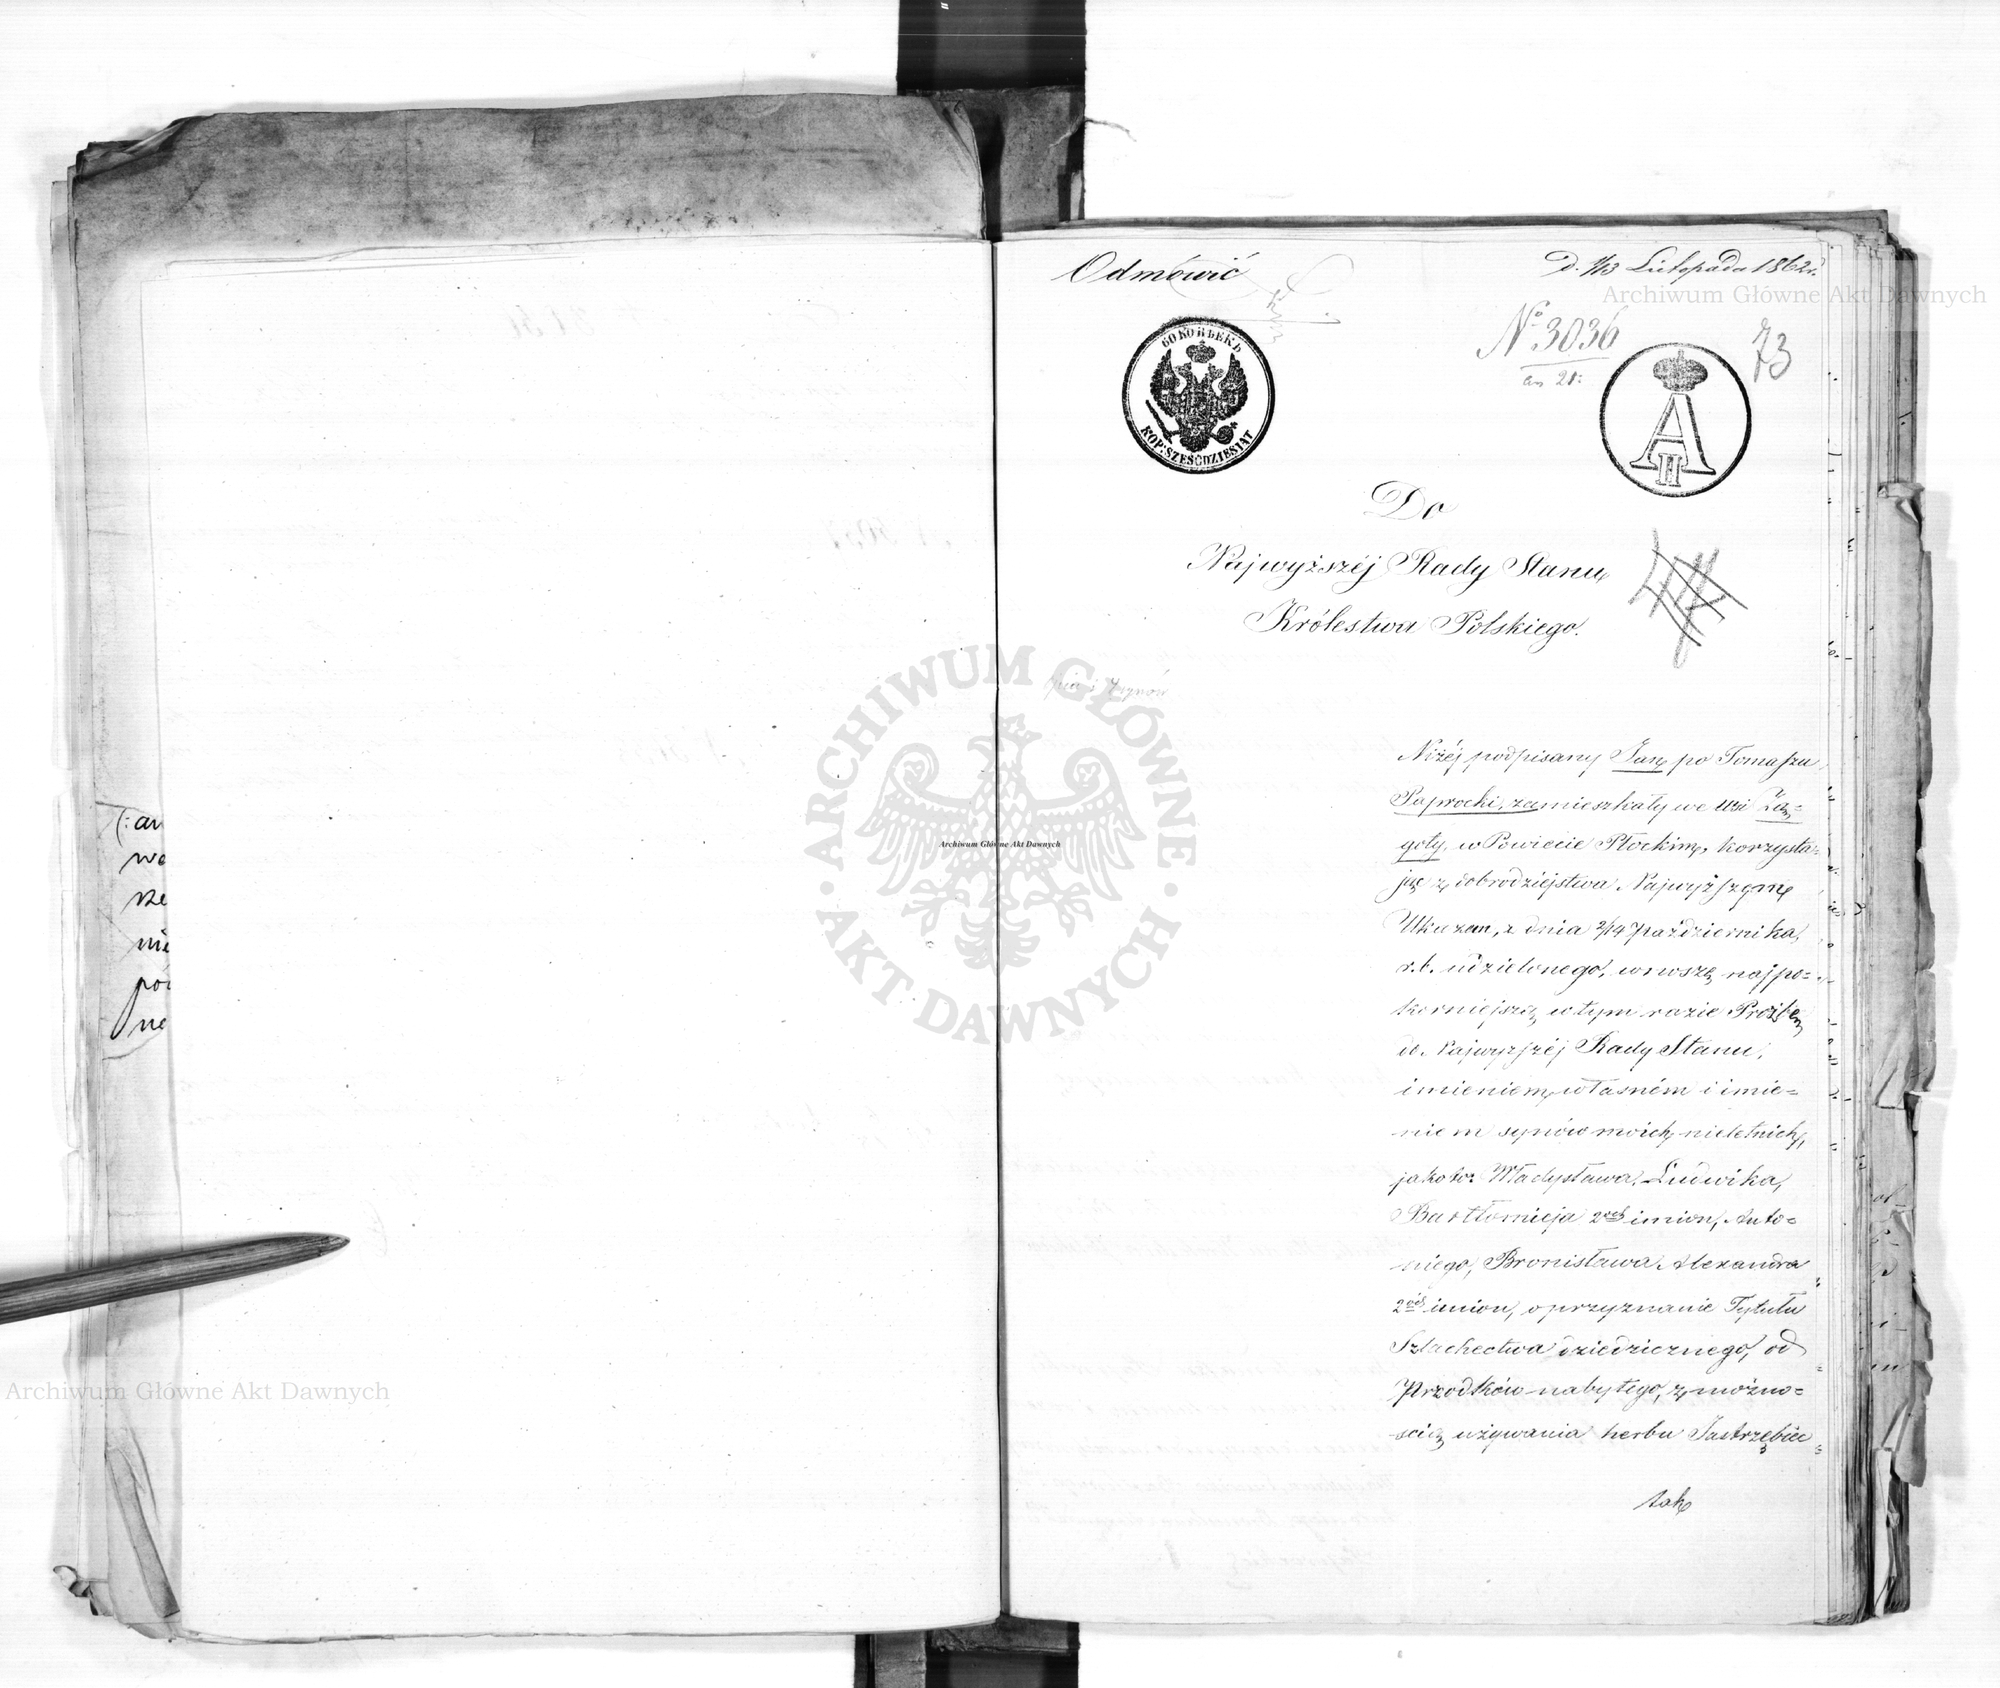 (: an
we
sze
nie
pó
ne
Odmówić
D. 1/13 Listopada 1862 r.
Nº 3036
73
60 КОПѢЕКЪ
KOP: SZEŚĆDZIESIĄT
A II
Do
Najwyższéj Rady Stanu
Królestwa Polskiego.
i synów
Niżéj podpisany Jan po Tomaszu
Paprocki, zamieszkały we Wsi Zą=
goty, w Powiecie Płockim, korzysta=
jąc z dobrodziejstwa Najwyższym
Ukazem, z dnia 2/14 Października
r. b. udzielonego, wnoszę najpo=
korniejszą w tym razie Prośbę
do Najwyższéj Rady Stanu,
imieniem własném i imie=
niem synów moich nieletnich,
jako to: Władysława, Ludwika,
Bartłomieja 2ch imion, Anto=
niego, Bronisława Alexandra
2ch imion, o przyznanie Tytułu
Szlachectwa dziedzicznego, od
Przodków nabytego, z możno=
ścią używania herbu Jastrzębiec
tak
Archiwum Główne Akt Dawnych
ARCHIWUM GŁÓWNE AKT DAWNYCH
Archiwum Główne Akt Dawnych
Archiwum Główne Akt Dawnych